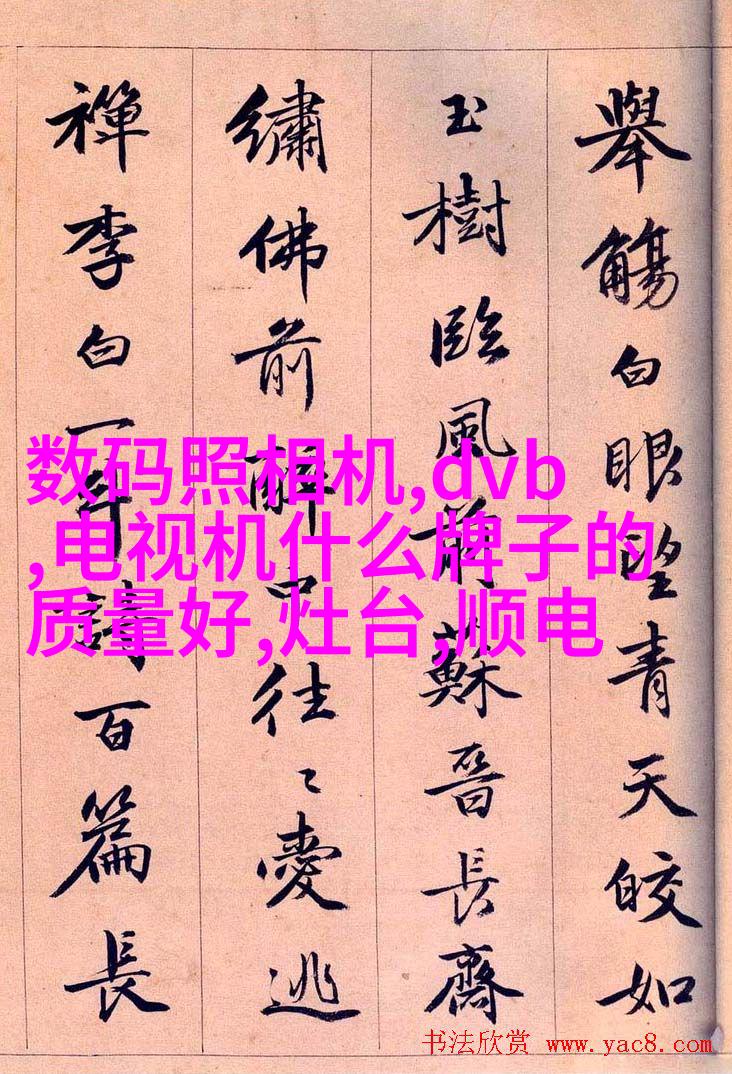 舉觴白眼望青天皎如
玉樹臨風前蘇晉長齋
繡佛前醉中往〻愛逃
禪李白一詩百篇長
数码照相机,dvb
,电视机什么牌子的
质量好,灶台,顺电
书法欣赏 www.yac8.com